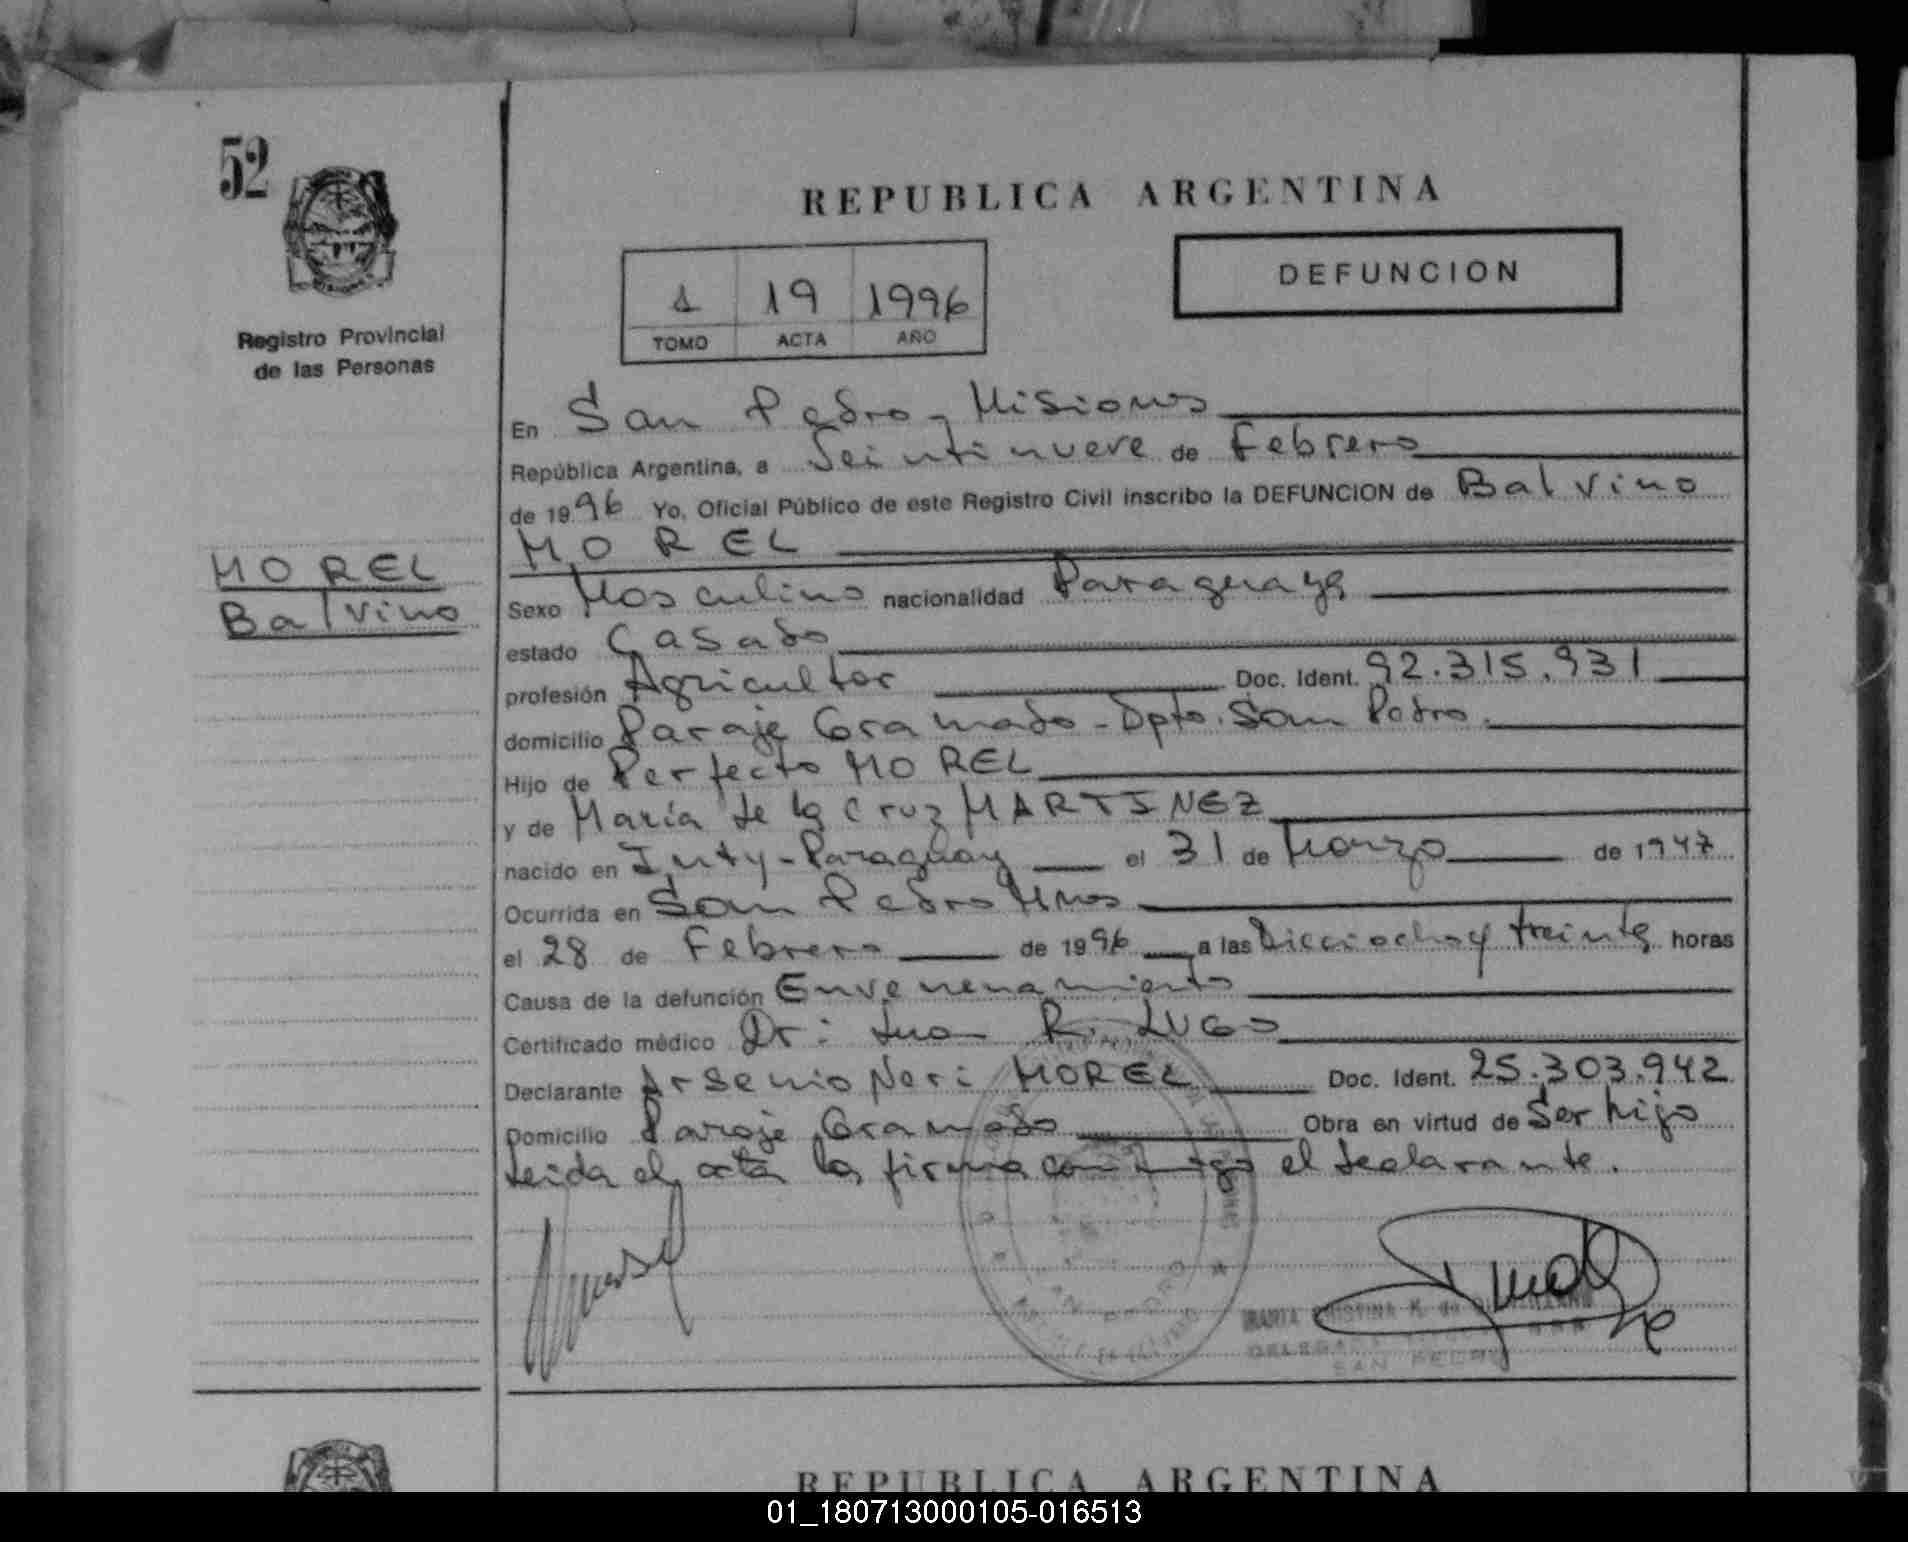 52
REPUBLICA ARGENTINA
1 19 1996
TOMO ACTA AÑO
DEFUNCION
Registro Provincial
de las Personas
En San Pedro - Misiones
República Argentina, a Veintinueve de Febrero
de 1996 Yo, Oficial Público de este Registro Civil inscribo la DEFUNCION de Balvino
MOREL
MOREL
Balvino
Sexo Masculino nacionalidad Paraguaya
estado Casado
profesión Agricultor Doc. Ident. 92.315.931
domicilio Paraje Gramado - Dpto. San Pedro.
Hijo de Perfecto MOREL
y de María de la Cruz MARTINEZ
nacido en Yuty - Paraguay el 31 de Marzo de 1947
Ocurrida en San Pedro Mnes
el 28 de Febrero de 1996 a las Dieciocho y treinta horas
Causa de la defunción Envenenamiento
Certificado médico Dr: Juan R. LUGO
Declarante Arsenio Neri MOREL Doc. Ident. 25.303.942
Domicilio Paraje Gramado Obra en virtud de Ser hijo
Leida el acta la firma conmigo el declarante.
SAN PEDRO
MARIA CRISTINA
SAN PEDRO
REPUBLICA ARGENTINA
01_180713000105-016513